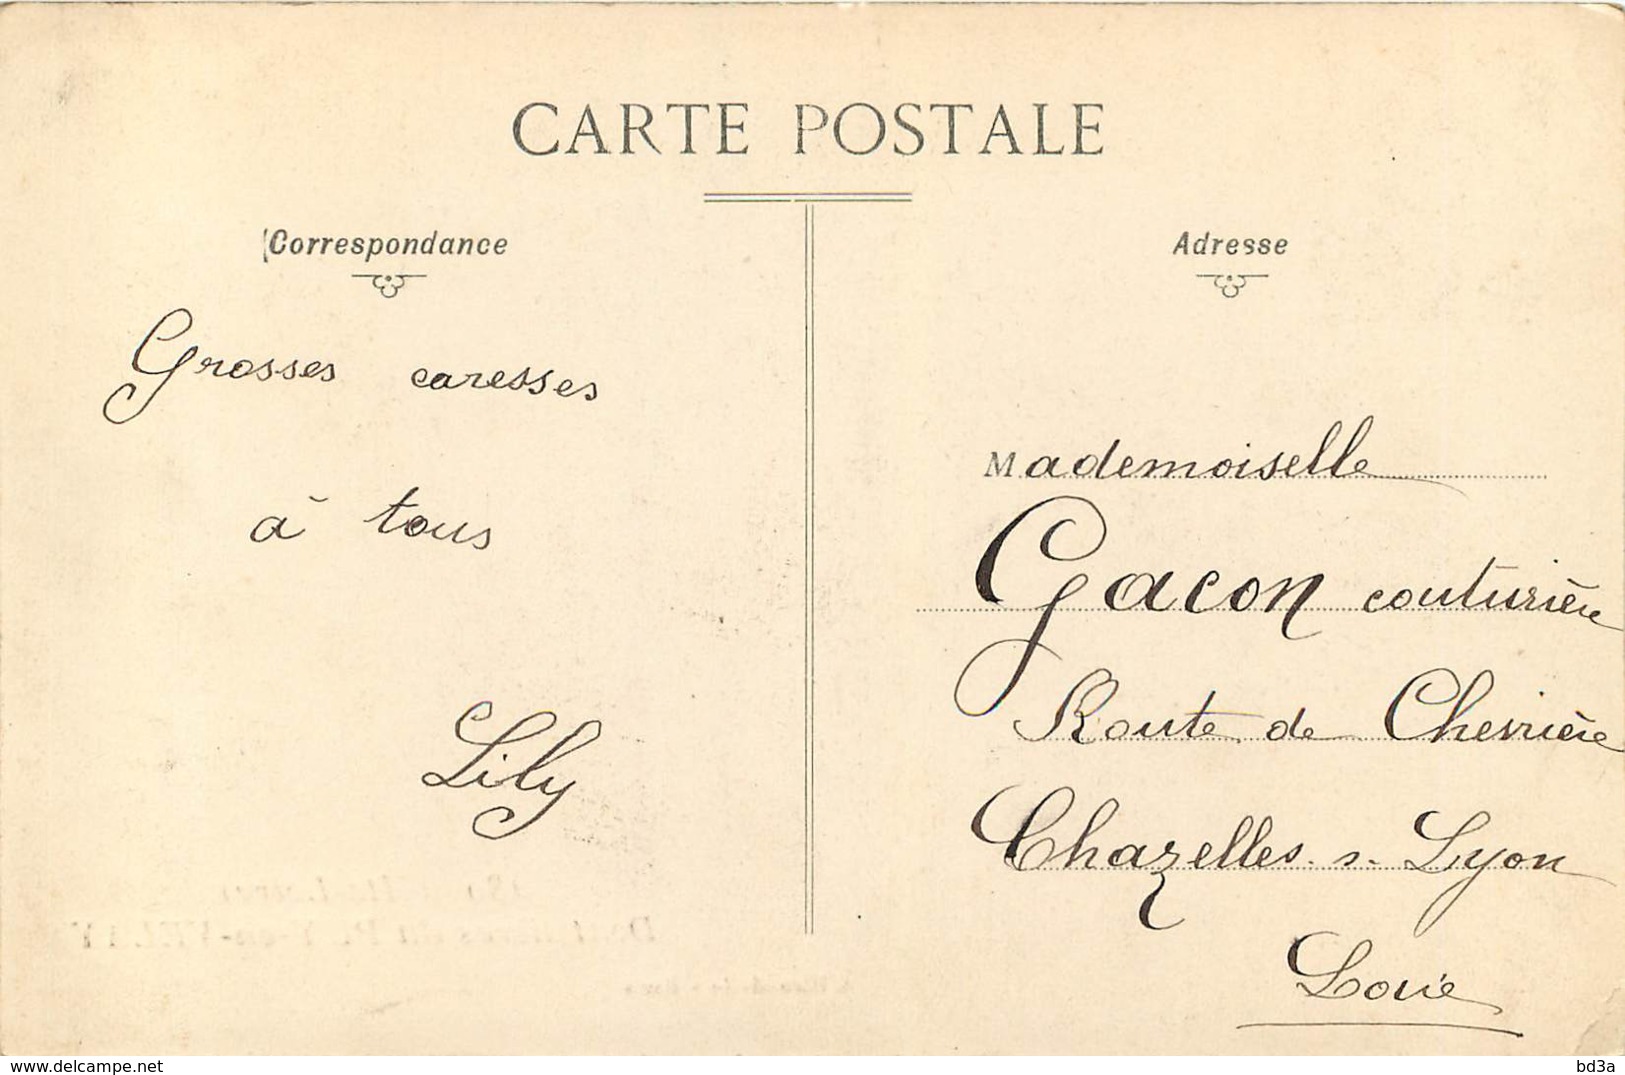 CARTE POSTALE
Correspondance
Grosses caresses
à tous
Lily
Adresse
Mademoiselle
Gacon couturière
Route de Chevrière
Chazelles s. Lyon
Loire
www.delcampe.net
bd3a